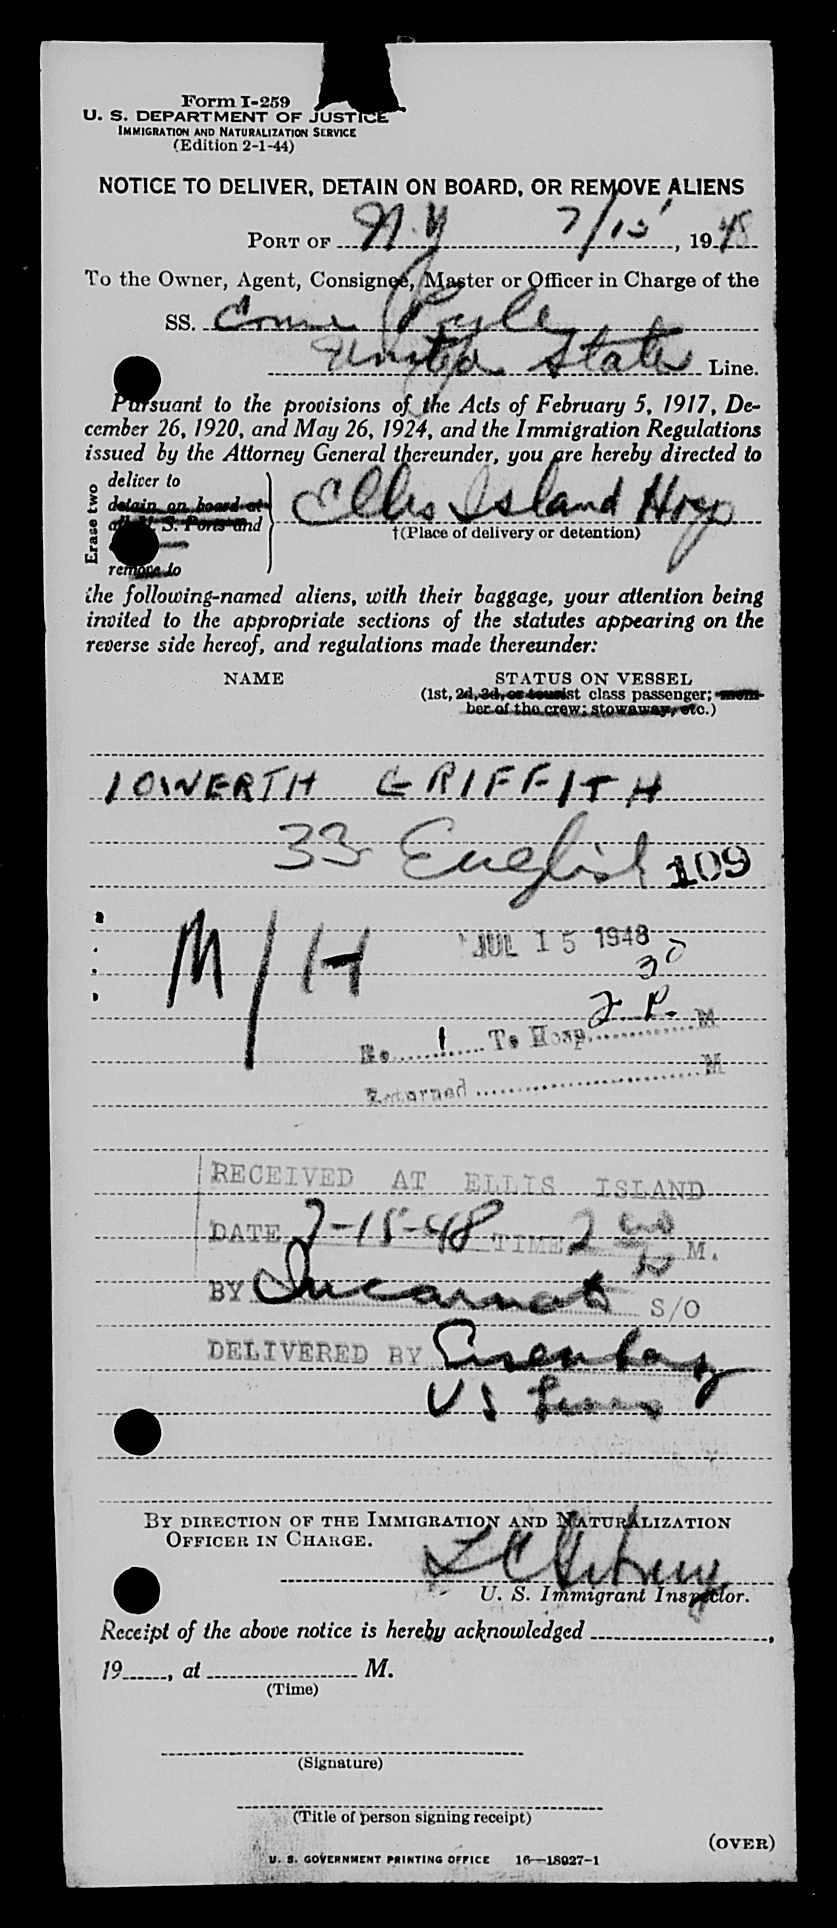 Form I-259
U. S. DEPARTMENT OF JUSTICE
IMMIGRATION AND NATURALIZATION SERVICE
(Edition 2-1-44)
NOTICE TO DELIVER, DETAIN ON BOARD, OR REMOVE ALIENS
PORT OF N.Y 7/15, 1948
To the Owner, Agent, Consignee, Master or Officer in Charge of the
SS. Ernie Pyle
United States Line.
Pursuant to the provisions of the Acts of February 5, 1917, De-
cember 26, 1920, and May 26, 1924, and the Immigration Regulations
issued by the Attorney General thereunder, you are hereby directed to
Erase two
deliver to
detain on board at
all U. S. Ports and
remove to
Ellis Island Hosp
†(Place of delivery or detention)
the following-named aliens, with their baggage, your attention being
invited to the appropriate sections of the statutes appearing on the
reverse side hereof, and regulations made thereunder:
NAME STATUS ON VESSEL
(1st, 2d, 3d, or tourist class passenger; mem-
ber of the crew; stowaway, etc.)
IOWERTH GRIFFITH
33 English 109
M/H JUL 15 1948
2 30 P. M
No. 1 To Hosp. M
Returned M
RECEIVED AT ELLIS ISLAND
DATE 7-15-48 TIME 2 M.
BY S/O
DELIVERED BY
US Lines
BY DIRECTION OF THE IMMIGRATION AND NATURALIZATION
OFFICER IN CHARGE.
U. S. Immigrant Inspector.
Receipt of the above notice is hereby acknowledged ,
19 , at M.
(Time)
(Signature)
(Title of person signing receipt)
(OVER)
U. S. GOVERNMENT PRINTING OFFICE 16—18027-1